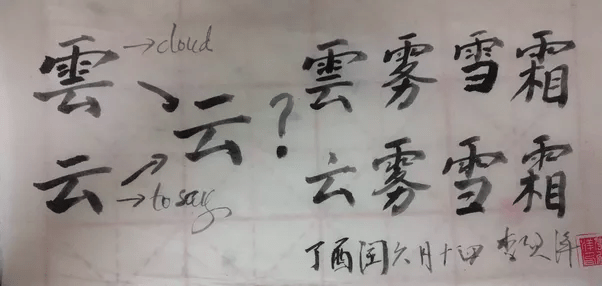 雲→cloud
云?
云→to say
雲雾雪霜
云雾雪霜
丁酉闰六月十四